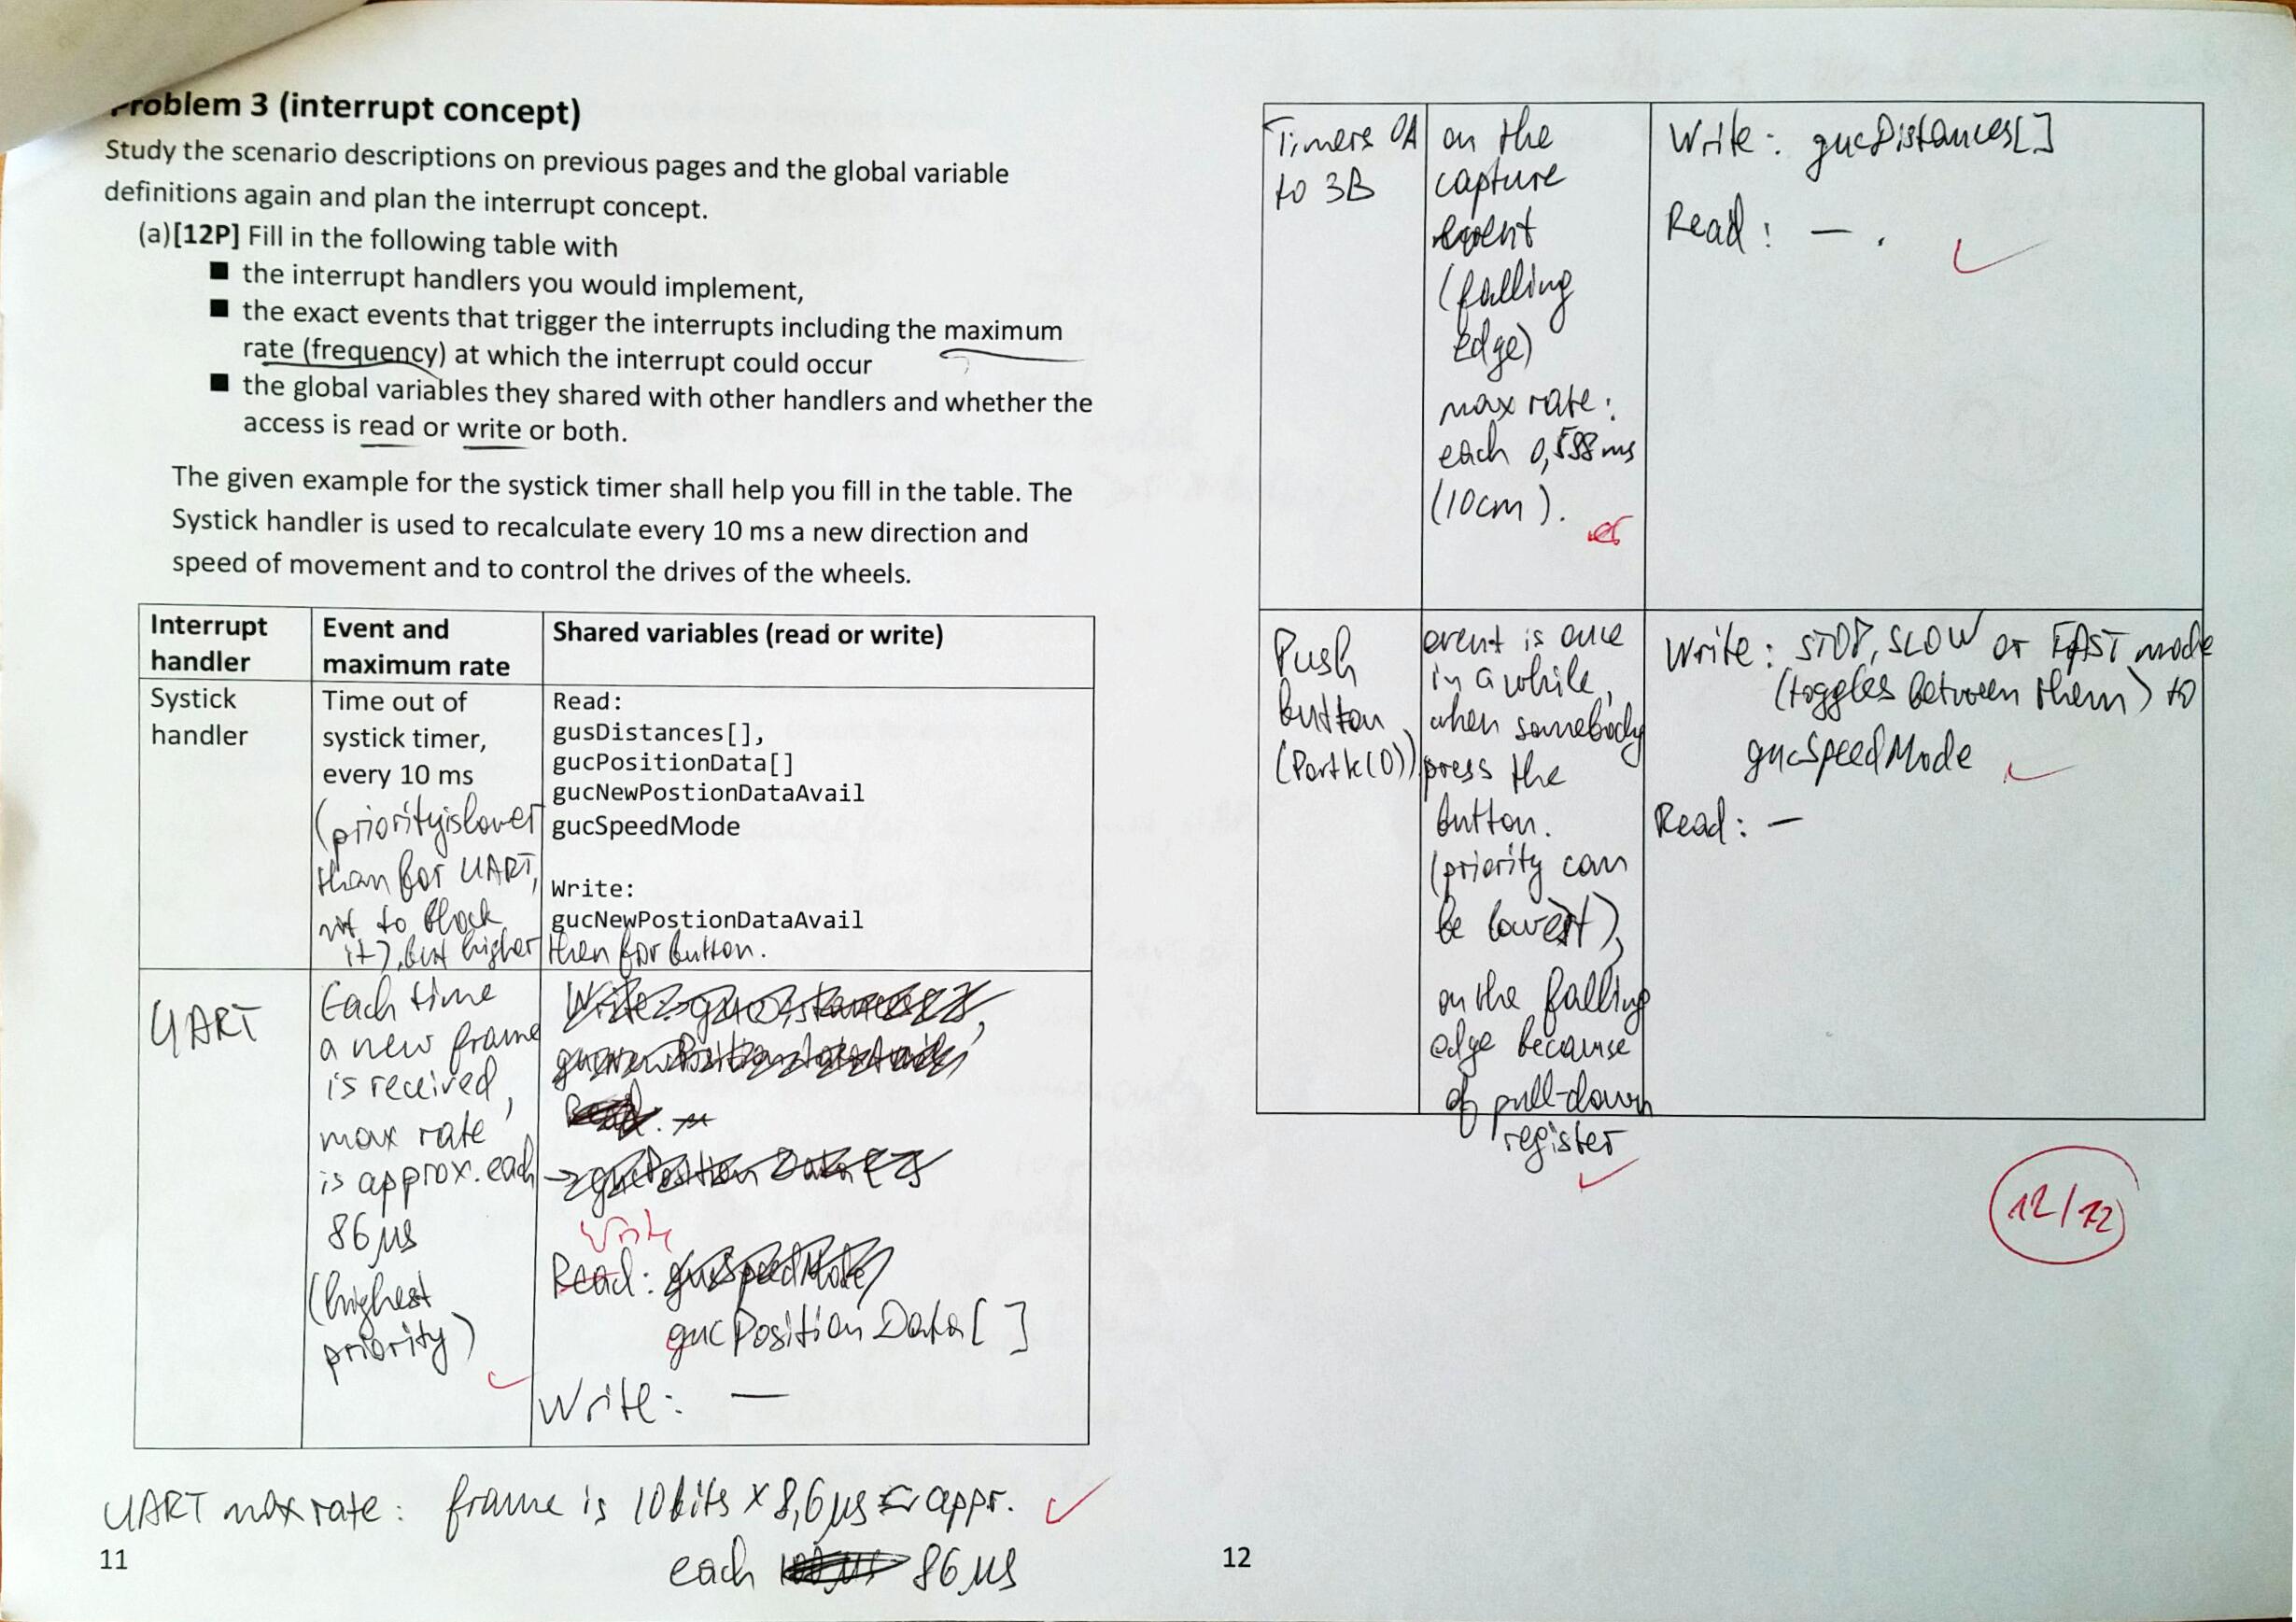 Problem 3 (interrupt concept)
Study the scenario descriptions on previous pages and the global variable
definitions again and plan the interrupt concept.
(a)[12P] Fill in the following table with
■ the interrupt handlers you would implement,
■ the exact events that trigger the interrupts including the maximum
rate (frequency) at which the interrupt could occur
■ the global variables they shared with other handlers and whether the
access is read or write or both.
The given example for the systick timer shall help you fill in the table. The
Systick handler is used to recalculate every 10 ms a new direction and
speed of movement and to control the drives of the wheels.
Interrupt
handler
Event and
maximum rate
Shared variables (read or write)
Systick
handler
Time out of
systick timer,
every 10 ms
(priority is lower
than for UART,
not to block
it), but higher then for button.
Read:
gusDistances[],
gucPositionData[]
gucNewPostionDataAvail
gucSpeedMode
Write:
gucNewPostionDataAvail
UART
Each time
a new frame
is received,
max rate
is approx. each
86 µs
(highest
priority)
Write
Read: gucSpeedMode
gucPositionData[ ]
Write: —
UART max rate: frame is 10 bits x 8,6 µs appr.
each 86 µs
11
Timers 0A
to 3B
on the
capture
event
(falling
edge)
max rate:
each 0,588 ms
(10cm).
Write: gucDistances[]
Read: — .
Push
button
(PortK(0))
event is once
in a while,
when somebody
press the
button.
(priority can
be lowest),
on the falling
edge because
of pull-down
register
Write: STOP, SLOW or FAST mode
(toggles between them) to
gucSpeedMode
Read: —
12/12
12